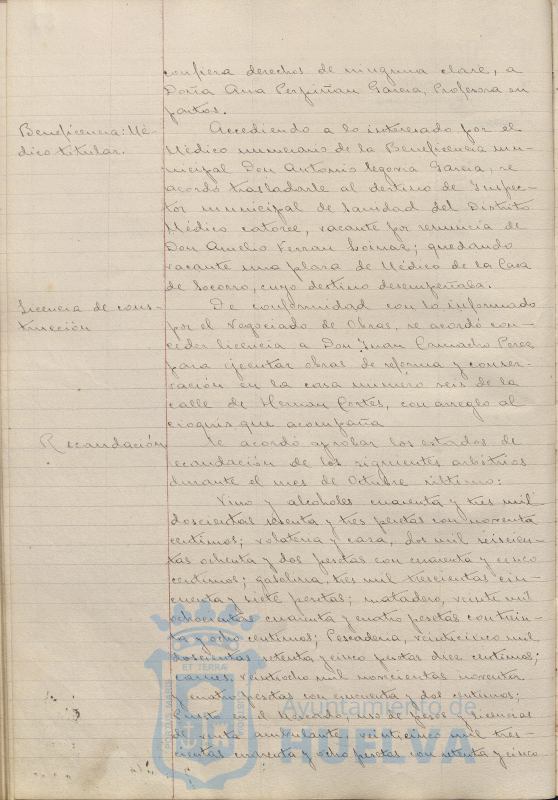 confiera derechos de ninguna clase, a
Doña Ana Perpiñan Garcia, Profesora en
partos.
Beneficencia: Mé-
dico titular.
Accediendo a lo interesado por el
Médico numerario de la Beneficencia mu-
nicipal Don Antonio Segovia Garcia, se
acordó trasladarle al destino de Inspec-
tor municipal de Sanidad del Distrito
Médico catorce, vacante por renuncia de
Don Amelio Ferran Loinaz; quedando
vacante una plaza de Médico de la Casa
de Socorro, cuyo destino desempeñaba.
Licencia de cons-
trucción
De conformidad con lo informado
por el Negociado de Obras, se acordó con-
ceder licencia a Don Juan Camacho Perez
para ejecutar obras de reforma y conser-
vación en la casa numero seis de la
calle de Hernan Cortés, con arreglo al
croquis que acompaña
Recaudación
Se acordó aprobar los estados de
recaudación de los siguientes arbitrios
durante el mes de Octubre último:
Vino y alcoholes cuarenta y tres mil
doscientas sesenta y tres pesetas con noventa
centimos; volateria y caza, dos mil seiscien-
tas ochenta y dos pesetas con cuarenta y cinco
centimos; gasolina, tres mil trescientas cin-
cuenta y siete pesetas; matadero, veinte mil
ochocientas cuarenta y cuatro pesetas con trein-
ta y ocho centimos; Pescaderia, veinticinco mil
doscientas setenta y cinco pesetas diez centimos;
carnes, veintiocho mil novecientas noventa
y cuatro pesetas con cincuenta y dos centimos;
Puesto en el Mercado, uso de pesos y licencias
de venta ambulante, veinticinco mil tres-
cientas cuarenta y ocho pesetas con setenta y cinco
PORTUS MARIS
ET TERRÆ
Ayuntamiento de
HUELVA